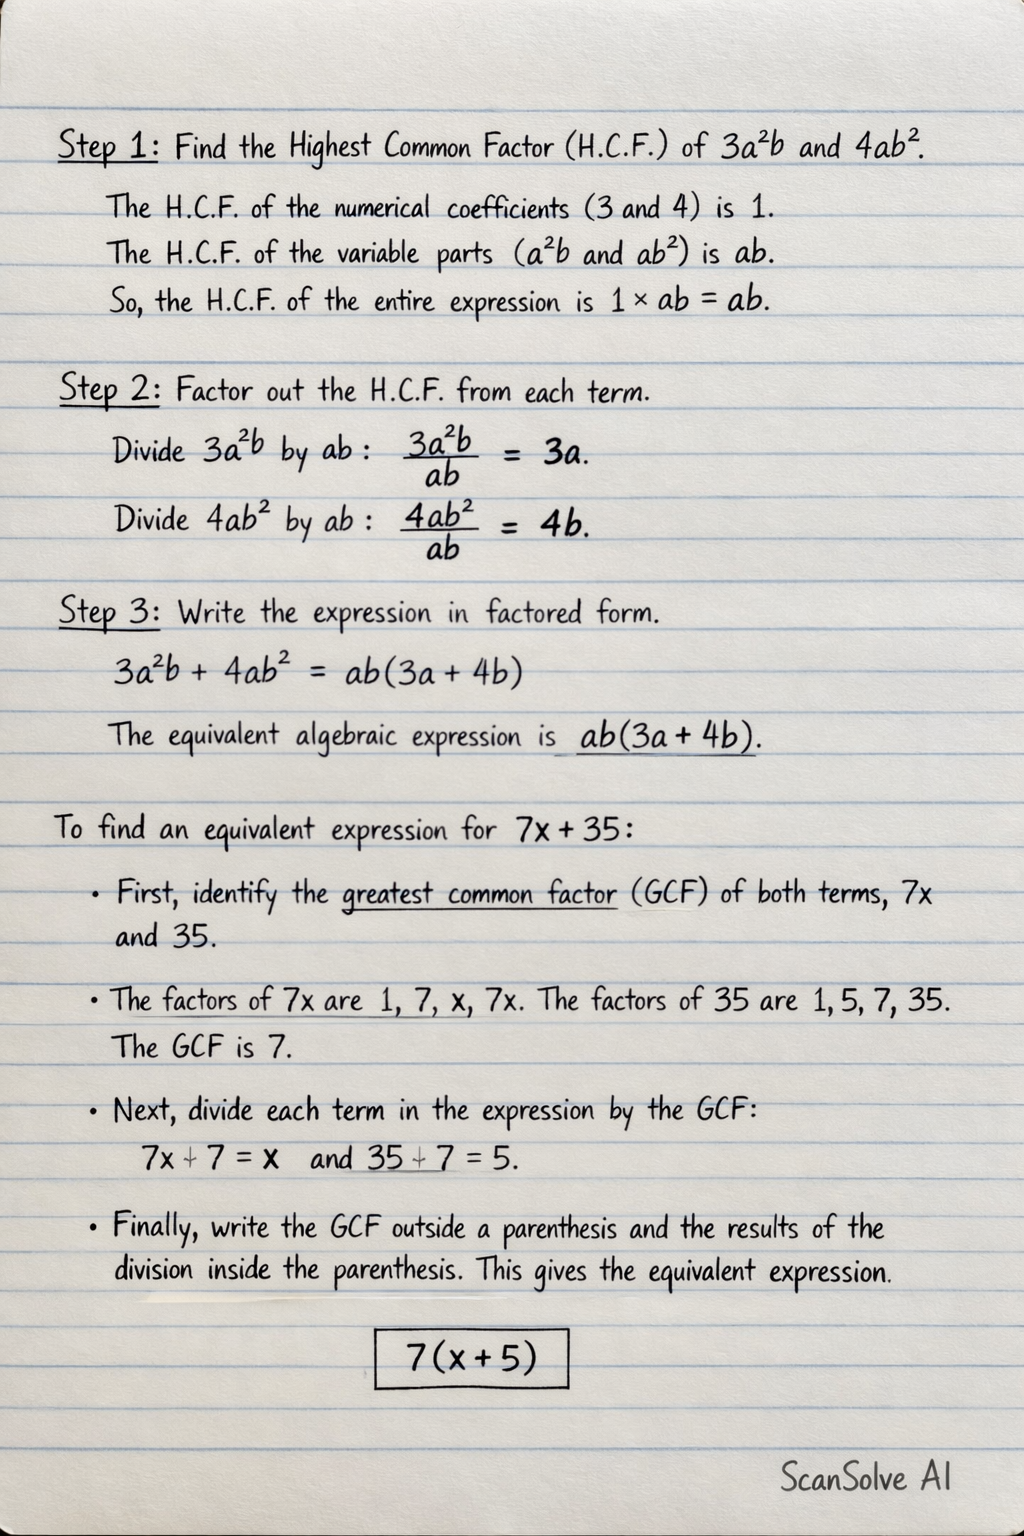 Step 1: Find the Highest Common Factor (H.C.F.) of 3a²b and 4ab².
The H.C.F. of the numerical coefficients (3 and 4) is 1.
The H.C.F. of the variable parts (a²b and ab²) is ab.
So, the H.C.F. of the entire expression is 1 × ab = ab.
Step 2: Factor out the H.C.F. from each term.
Divide 3a²b by ab : 3a²b/ab = 3a.
Divide 4ab² by ab : 4ab²/ab = 4b.
Step 3: Write the expression in factored form.
3a²b + 4ab² = ab(3a + 4b)
The equivalent algebraic expression is ab(3a + 4b).
To find an equivalent expression for 7x + 35:
• First, identify the greatest common factor (GCF) of both terms, 7x
and 35.
• The factors of 7x are 1, 7, x, 7x. The factors of 35 are 1, 5, 7, 35.
The GCF is 7.
• Next, divide each term in the expression by the GCF:
7x + 7 = x and 35 + 7 = 5.
• Finally, write the GCF outside a parenthesis and the results of the
division inside the parenthesis. This gives the equivalent expression.
7(x + 5)
ScanSolve AI